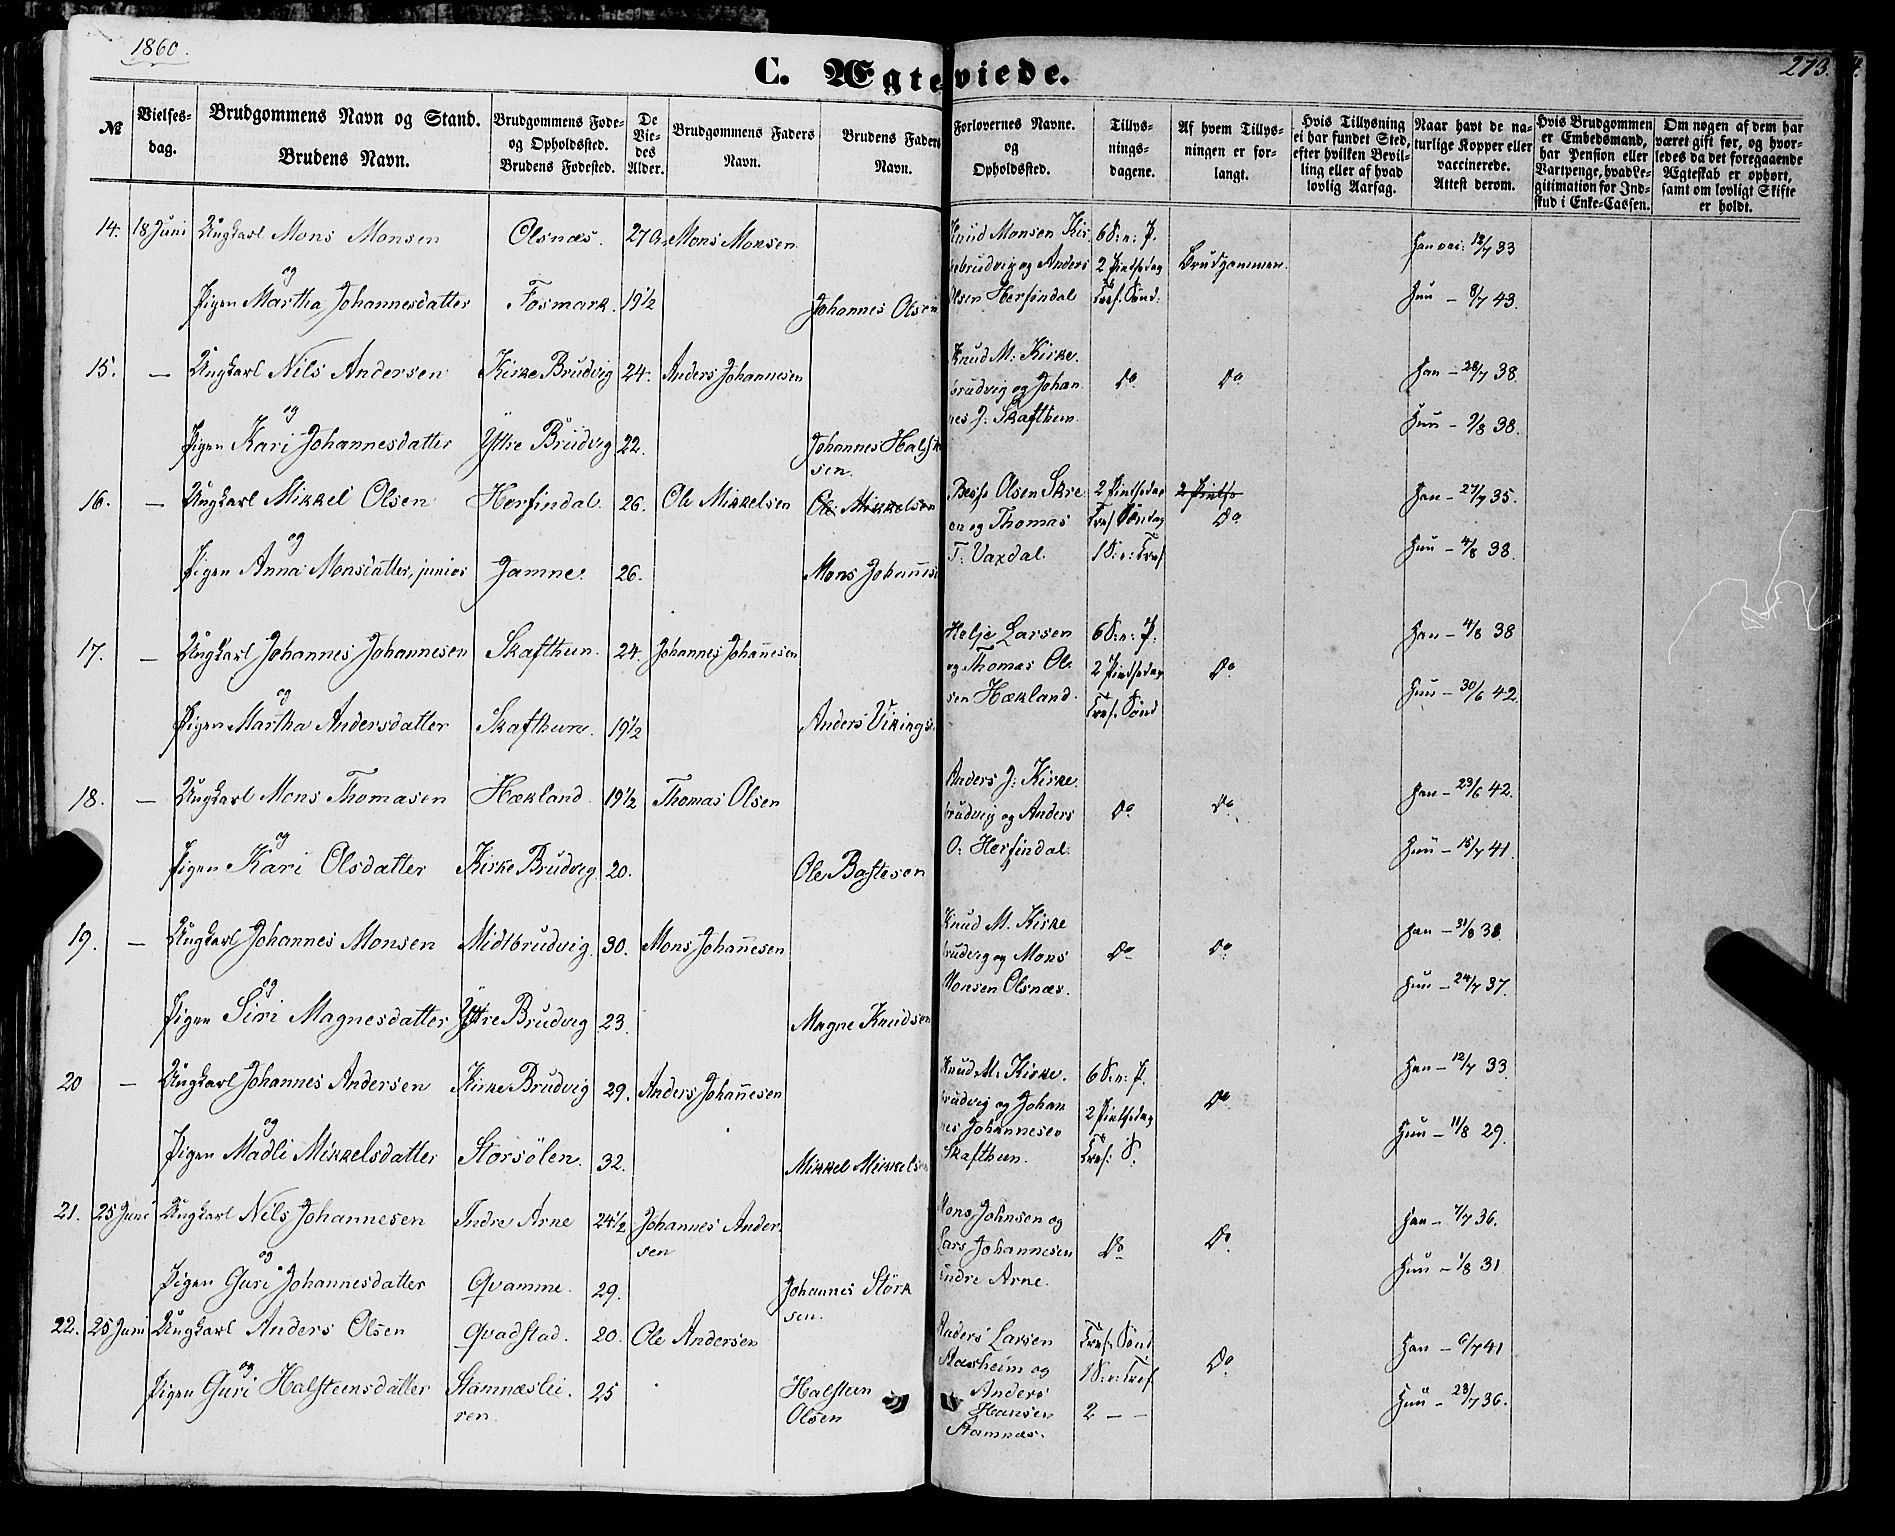 1860.
273.
C. Ægteviede.
№
Vielses-
dag.
Brudgommens Navn og Stand.
Brudens Navn.
Brudgommens Føde-
og Opholdssted.
Brudens Fødested.
De
Vie-
des
Alder.
Brudgommens Faders
Navn.
Brudens Faders
Navn.
Forlovernes Navne.
og
Opholdssted.
Tillys-
nings-
dagene.
Af hvem Tillys-
ningen er for-
langt.
Hvis Tillysning
ei har fundet Sted,
efter hvilken Bevil-
ling eller af hvad
lovlig Aarsag.
Naar havt de na-
turlige Kopper eller
vaccinerede.
Attest derom.
Hvis Brudgommen
er Embedsmand,
har Pension eller
Vartpenge, hvad Le-
gitimation for Ind-
skud i Enke-Cassen.
Om nogen af dem har
været gift før, og hvor-
ledes da det foregaaende
Ægteskab er ophørt,
samt om lovligt Skifte
er holdt.
14. 18 Juni Ungkarl Mons Monsen Olsnæs. 27 Mons Monsen
og
Pigen Martha Johannesdatter Fosmark. 19½ Johannes Olsen
Knud Monsen Kir
kebrudvig og Anders
Olsen Herfindal
6 S. e. P.
2 Pintsedag
Tref. Sønd:
Brudgommen.
Han vac: 12/7 33
Hun — 8/7 43.
15. — Ungkarl Nils Andersen Kirke Brudvig 24. Anders Johannesen
og
Pigen Kari Johannesdatter Ytre Brudvig 22. Johannes Halst
sen.
Knud M: Kirke.
brudvig og Johan
nes J: Skafthun.
Do
Do
Han — 28/7 38.
Hun — 9/8 38.
16. — Ungkarl Mikkel Olsen Herfindal. 26. Ole Mikkelsen Ole Mikkelsen
og
Pigen Anna Monsdatter, junior Jamne. 26. Mons Johannese
Olsen Skre
en og Thomas
T. Vaxdal.
2 Pintsedag
Tref Søndag
1 S. e: Tref
2 Pintse
Do
Han — 27/7 35.
Hun — 4/8 38.
17. — Ungkarl Johannes Johannesen Skafthun. 24. Johannes Johannesen
og
Pigen Martha Andersdatter Skafthun. 19½ Anders Vikings.
Helje Larsen
og Thomas Ol.
sen Hækland.
6 S: e: P.
2 Pintsedag
Tref. Sønd
Do
Han — 4/8 38
Hun — 30/6 42.
18. — Ungkarl Mons Thomasen Hækland. 19½ Thomas Olsen
og
Pigen Kari Olsdatter Kirke Brudvig. 20. Ole Bastesen
Anders J: Kirke
brudvig og Anders
O: Herfindal.
Do
Do
Han — 23/6 42.
Hun — 15/7 41.
19. — Ungkarl Johannes Monsen Midtbrudvig. 30. Mons Johannesen
og
Pigen Siri Magnesdatter Ytre Brudvig 23. Magne Knudsen
Knud M. Kirke
brudvig og Mons
Monsen Olsnæs.
Do
Do
Han — 31/8 31
Hun — 24/7 37.
20 — Ungkarl Johannes Andersen Kirke Brudvig 29. Anders Johannesen
og
Pigen Madli Mikkelsdatter Storsölen. 32. Mikkel Mikkelsen
Knud M: Kirke.
brudvig og Johan
nes Johannesen
Skafthun.
6 S. e: P.
2 Pintsedag
Tref: S.
Do
Han — 12/7 33
Hun — 11/8 29.
21. 25 Juni Ungkarl Nils Johannesen Indre Arne 24½ Johannes Ander
sen
og
Pigen Guri Johannesdatter Qvamme. 29. Johannes Störk
sen.
Mons Johnsen og
Lars Johannesen
Indre Arne.
Do
Do
Han — 7/7 36.
Hun — 1/8 31
22. 25 Juni Ungkarl Anders Olsen Qvadstad. 20. Ole Andersen
og
Pigen Guri Halsteensdatter Stamnæslei. 25 Halsteen
ren. Olsen
Anders Larsen
og
Anders
Hansen
Stamnæs.
Tref. Sønd
1 S: e: Tref
2 — —
Do
Han — 6/7 41
Hun — 23/7 36.